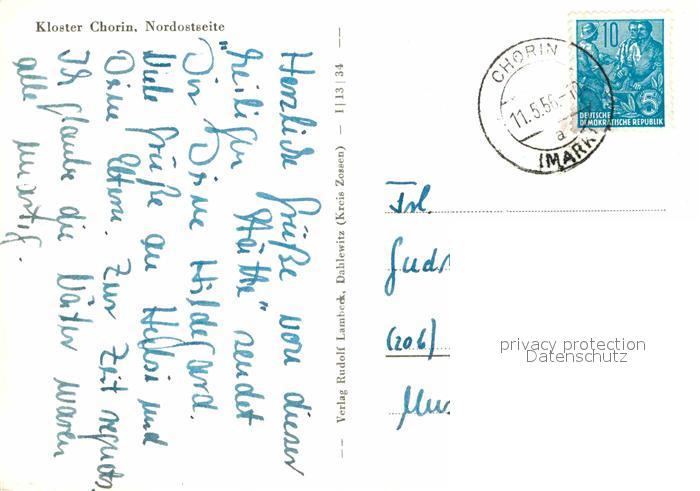 Kloster Chorin, Nordostseite
Herzliche Grüße von dieser
"heiligen Stätte" sendet
Dir Deine Hildegard.
Viele Grüße an Helfsi und
Deine Eltern. Zur Zeit regnets.
Ich glaube die Väter waren
alle unartig.
Verlag Rudolf Lambeck, Dahlewitz (Kreis Zossen) — I|13|34
CHORIN
11.5.56
a
(MARK)
10
5
DEUTSCHE
DEMOKRATISCHE REPUBLIK
Frl.
Gudr
(20b)
privacy protection
Datenschutz